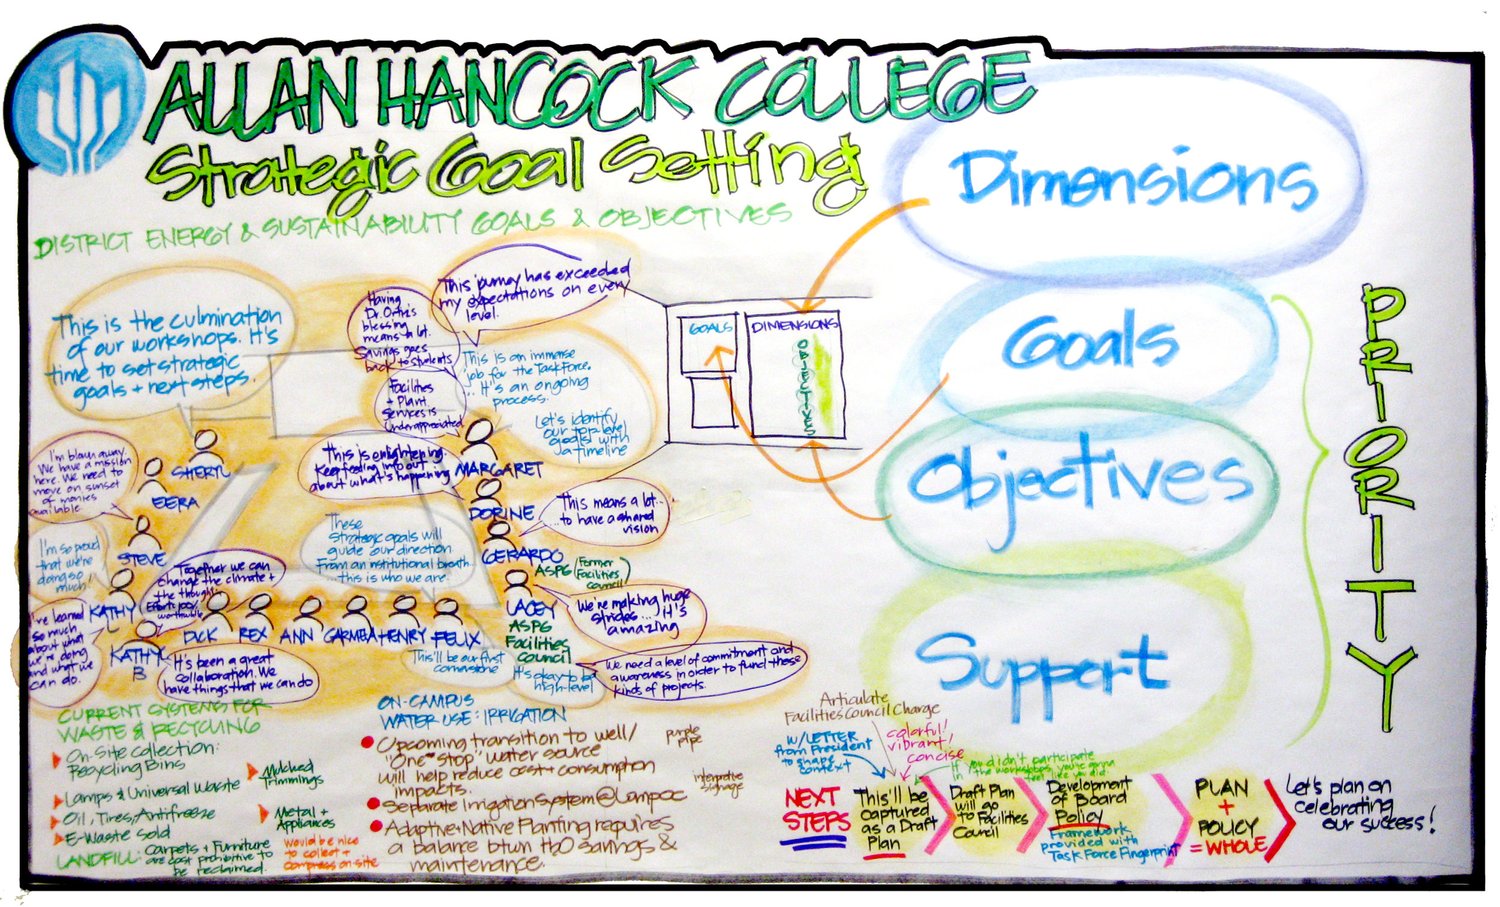 ALLAN HANCOCK COLLEGE
Strategic Goal Setting
DISTRICT ENERGY & SUSTAINABILITY GOALS & OBJECTIVES
This is the culmination
of our workshops. It's
time to set strategic
goals + next steps.
Having
Dr. Ortiz's
blessing
means a lot.
Savings goes
back to students
This journey has exceeded
my expectations on every
level.
This is an immense
job for the Task Force.
... It's an ongoing
process.
Let's identify
our top level
goals with
a timeline
Facilities
+ Plant
Services is
Underappreciated
This is enlightening
Keep feeding info out
about what's happening
I'm blown away
We have a mission
here. We need to
move on sunset
of monies
available
SHERYL
EERA
STEVE
MARGARET
DORINE
GERARDO
ASPG (Former
Facilities
Council)
This means a lot...
...to have a shared
vision
These
Strategic goals will
guide our direction
From an institutional breath
this is who we are.
I'm so proud
that we're
doing so
much."
Together we can
change the climate +
the thought.
Efforts 100%
worthwhile
KATHY
DICK
REX
ANN
CARMEA
HENRY
FELIX
LACEY
ASPG
Facilities
Council
We're making huge
strides... It's
amazing
I've learned
so much
about what
we're doing
and what we
can do.
KATHY
B
It's been a great
collaboration. We
have things that we can do
This'll be our first
cornerstone
It's okay to be
high-level
We need a level of commitment and
awareness in order to fund these
kinds of projects.
GOALS
DIMENSIONS
OBJECTIVES
Dimensions
Goals
Objectives
Support
PRIORITY
CURRENT SYSTEMS FOR
WASTE & RECYCLING
On-Site Collection:
Recycling Bins
Mulched
Trimmings
Lamps & Universal Waste
Oil, Tires, Antifreeze
Metal +
Appliances
E-Waste Sold
LANDFILL: Carpets + Furniture
are cost prohibitive to
be reclaimed.
Would be nice
to collect +
compress on-site
ON-CAMPUS
WATER USE: IRRIGATION
Upcoming transition to well/
"One-stop" water source
will help reduce cost + consumption
impacts.
purple
pipe
Separate Irrigation System @ Lompoc
interpretive
signage
Adaptive + Native Planting requires
a balance btwn H2O savings &
maintenance.
Articulate
Facilities Council Charge
W/LETTER
from President
to shape
context
colorful!
vibrant!
concise
If you didn't participate
in the workshops you're gonna
feel like you did
NEXT
STEPS
This'll be
captured
as a Draft
Plan
Draft Plan
will go
to Facilities
Council
Development
of Board
Policy
Framework
provided with
Task Force Fingerprint
PLAN
+
POLICY
= WHOLE
Let's plan on
celebrating
our success!